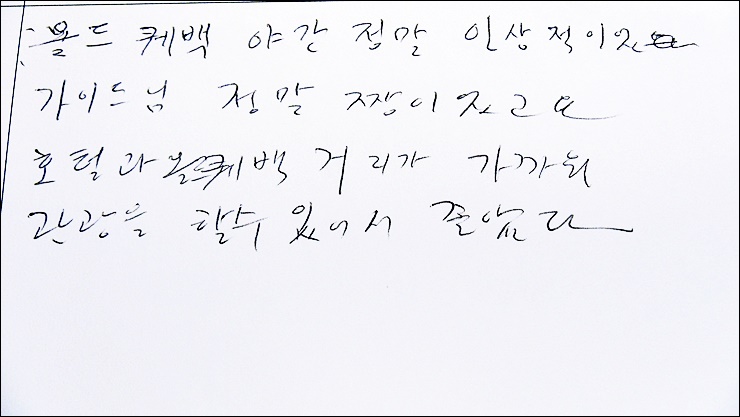 올드 퀘백 야간 정말 인상적이었
가이드님 정말 짱이었고요
호털과 올드퀘백 거리가 가까워
관광을 할수 있어서 좋았다